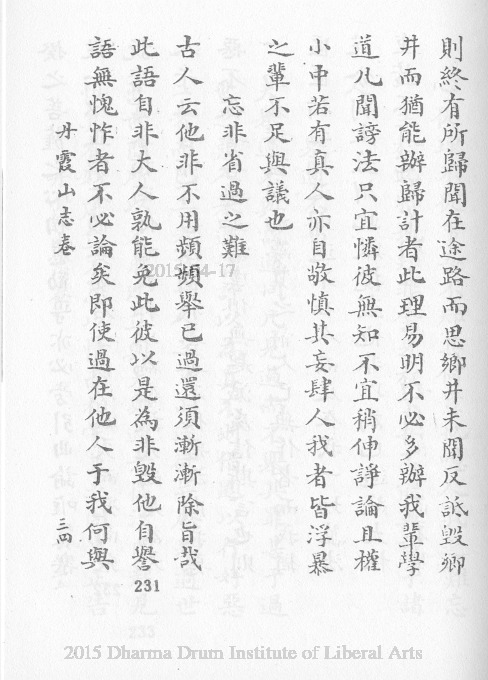 則終有所歸聞在途路而思鄉井未聞反詆毀鄉
井而猶能辦歸計者此理易明不必多辦我輩學
道凡聞謗法只宜憐彼無知不宜稍伸諍論且權
小中若有真人亦自敬慎其妄肆人我者皆浮暴
之輩不足與議也
忘非省過之難
古人云他非不用頻頻舉已過還須漸漸除旨哉
此語自非大人孰能免此彼以是為非毀他自譽
語無愧怍者不必論矣即使過在他人于我何與
丹霞山志卷
三四
231
2015-04-17
2015 Dharma Drum Institute of Liberal Arts